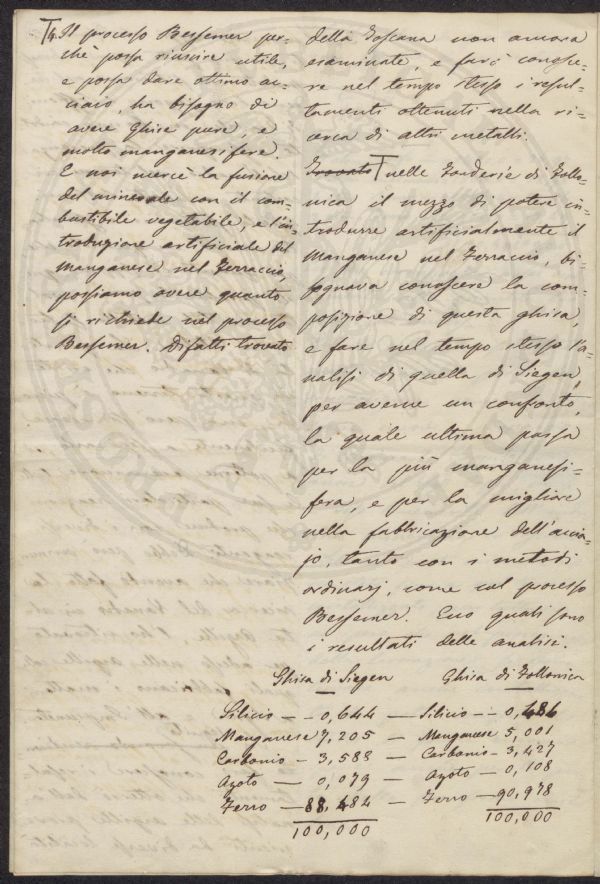 T4. Il processo Bessemer per-
chè possa riuscire utile,
e possa dare ottimo ac-
ciaio, ha bisogno di
avere Ghise pure, e
molto manganesifere.
E noi mercè la fusione
del minerale con il com-
bustibile vegetabile, e l'in-
troduzione artificiale del
manganese nel Ferraccio,
possiamo avere quanto
si richiede nel processo
Bessemer. Difatti trovato
della Toscana non ancora
esaminate, e farò conosce-
re nel tempo stesso i resul-
tamenti ottenuti nella ri-
cerca di altri metalli.
Trovato T nelle Fonderie di Follo-
nica il mezzo di potere in-
trodurre artificialmente il
Manganese nel Ferraccio, bi-
sognava conoscere la com-
posizione di questa ghisa,
e fare nel tempo stesso l'a-
nalisi di quella di Siegen,
per averne un confronto,
la quale ultima passa
per la più manganesi-
fera, e per la migliore
nella fabbricazione dell'accia-
jo, tanto con i metodi
ordinarj, come col processo
Bessemer. Ecco quali sono
i resultati delle analisi.
Ghisa di Siegen Ghisa di Follonica
Silicio — 0,644 — Silicio — 0,486
Manganese 7,205 — Manganese 5,001
Carbonio — 3,588 — Carbonio — 3,427
Azoto — 0,079 — Azoto — 0,108
Ferro — 88,484 — Ferro — 90,978
100,000 100,000